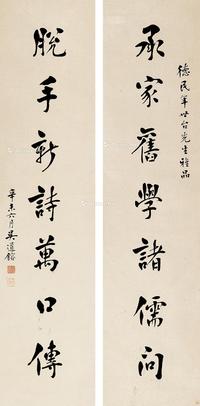 德民年世台先生雅品
承家舊學諸儒問
脫手新詩萬口傳
辛未六月吳道鎔